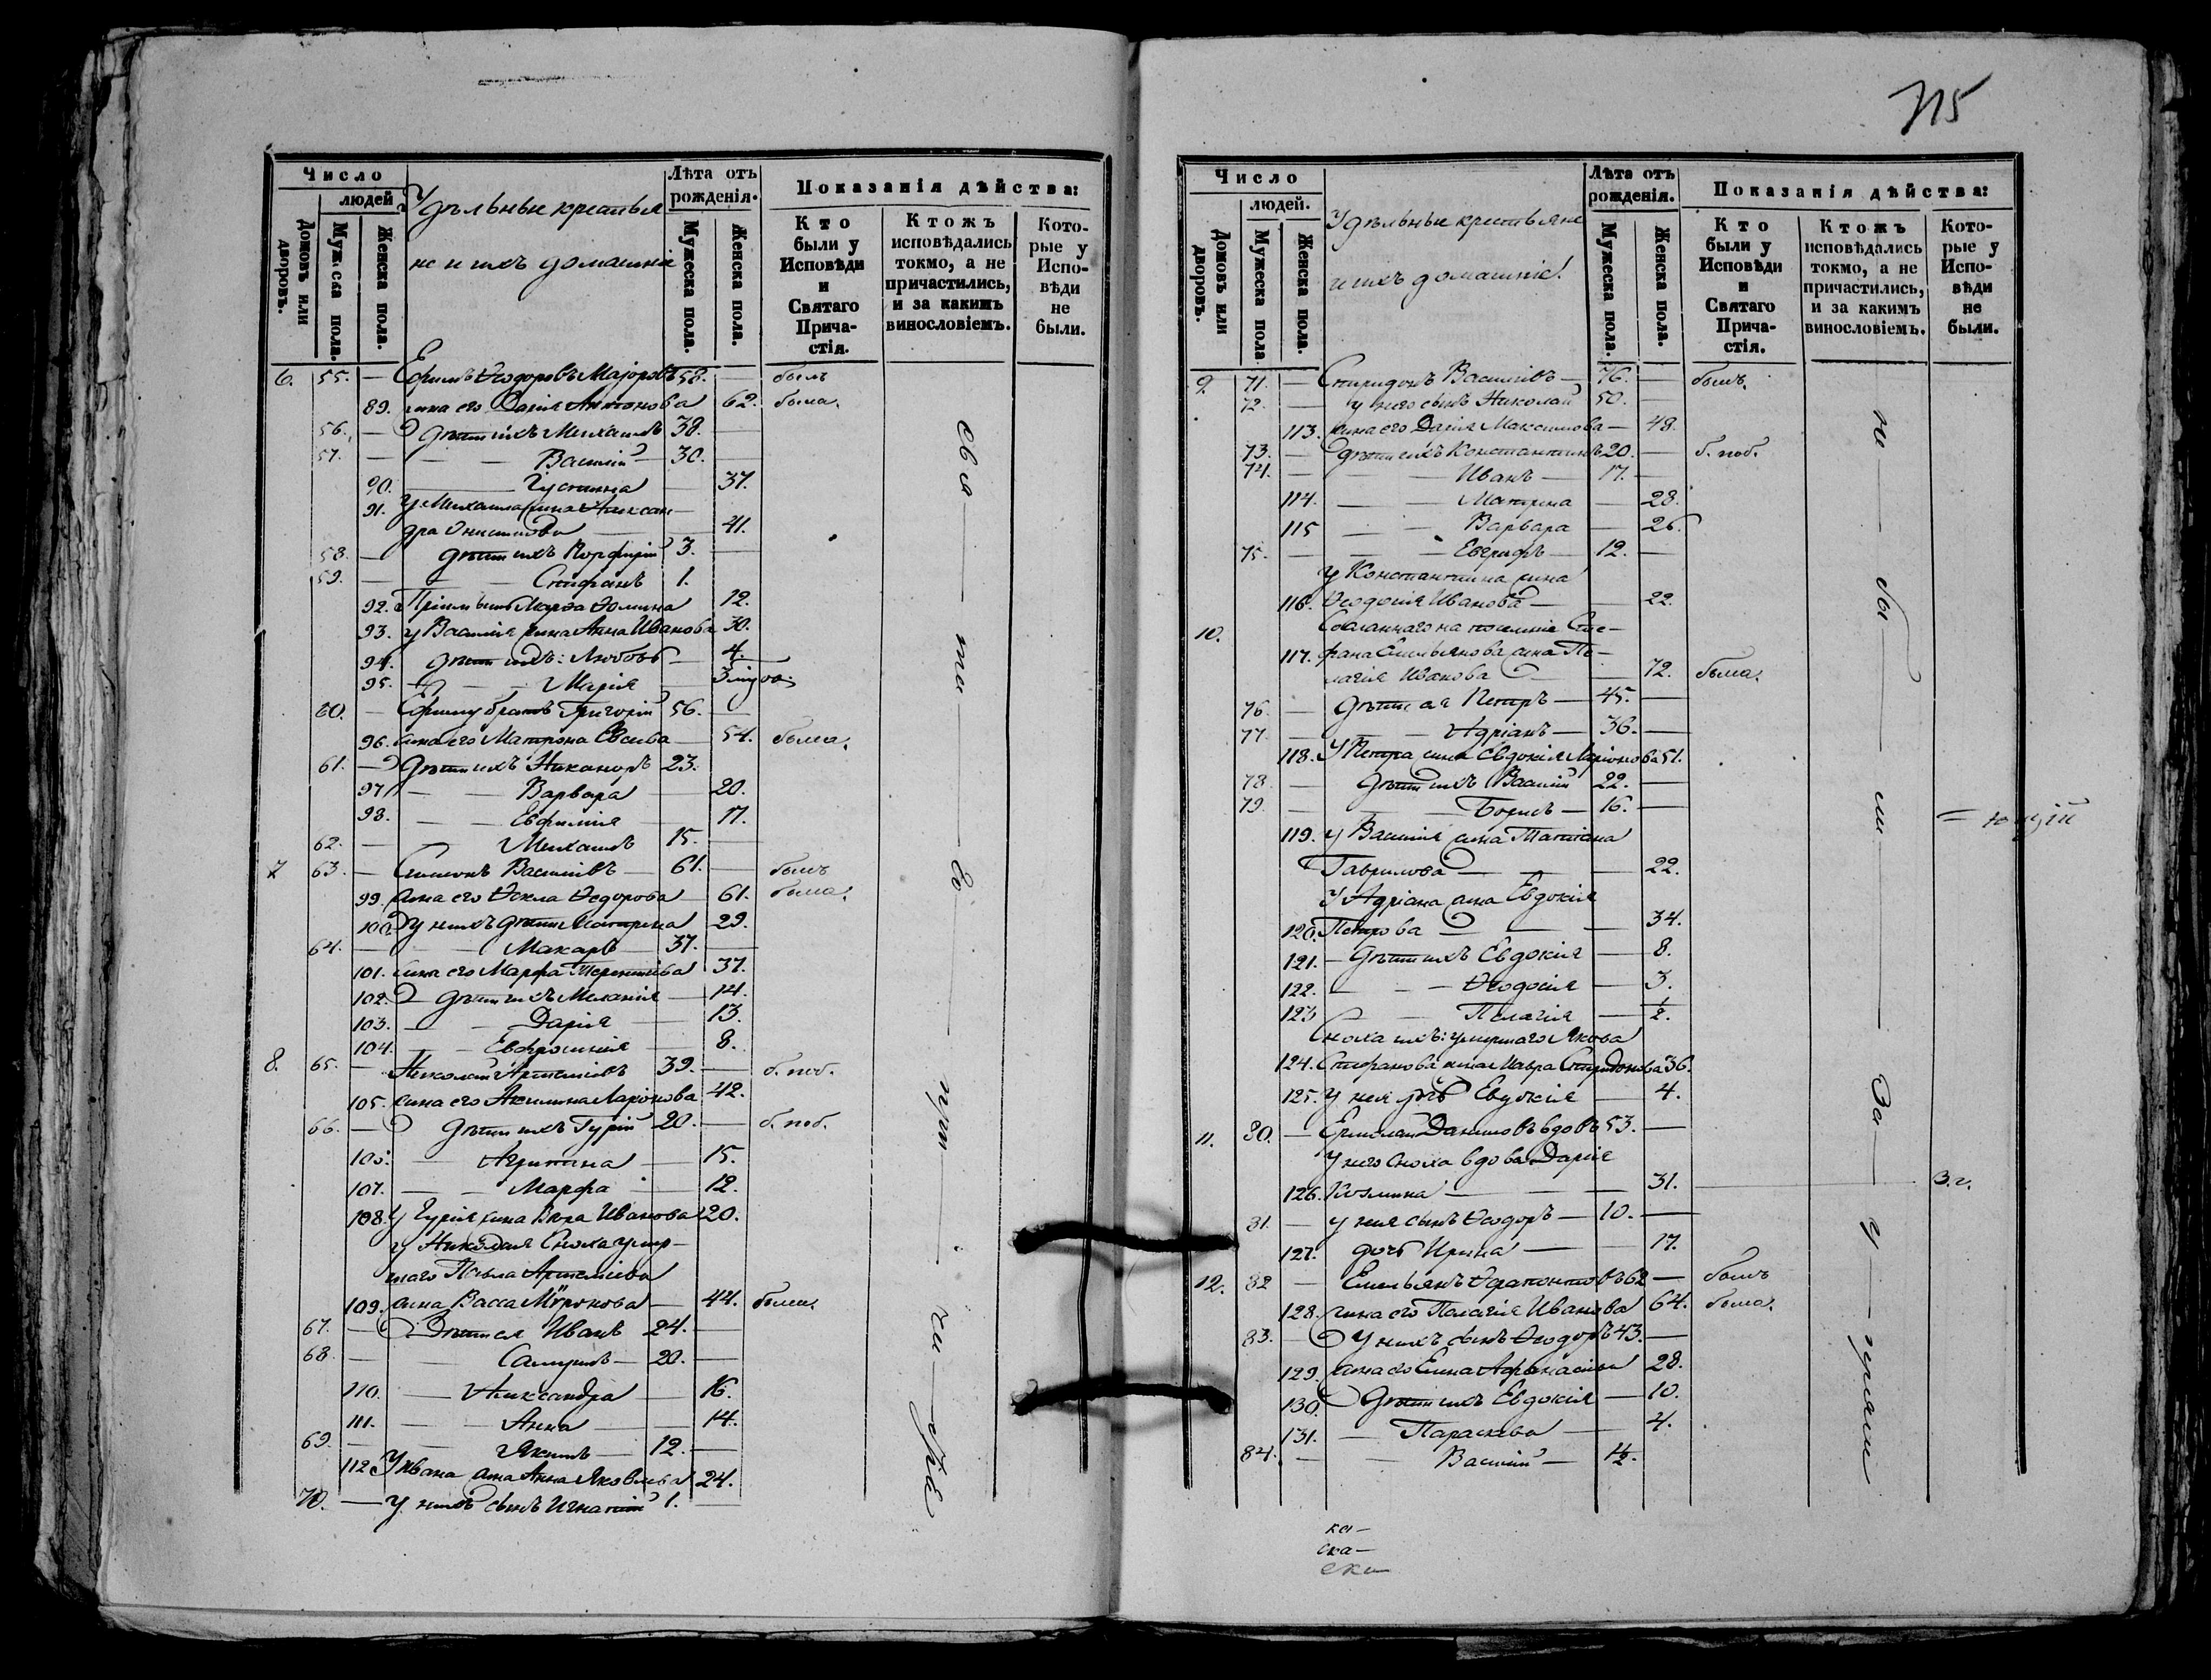 Число
людей
Домовъ или дворовъ.
Мужеска пола.
Женска пола.
Удѣльные крестья
не и ихъ домашніе
Лѣта отъ рожденія.
Мужеска пола.
Женска пола.
Показанія дѣйства:
Кто были у Исповѣди и Святаго Прича-стія.
Ктожъ исповѣдались токмо, а не причастились, и за какимъ винословіемъ.
Кото-рые у Испо-вѣди не были.
6. 55. — Ефимъ Ѳеодоровъ Маjоровъ 58. — былъ
89. жена его Дарія Антонова 62. была.
56. — Дѣти ихъ Михаилъ 38. —
57. — — Василій 30. —
90. — Густина — 37.
91. У Михаила жена Алексан-
дра Онисимова — 41.
58. — дѣти ихъ Порфирій 3. —
59. — — Стефанъ 1.
92. Пріемышъ Марѳа Ѳомина 12.
93. у Василія жена Анна Иванова 30.
94. дѣти ихъ: Любовь — 4.
95. — — Марія —
60. — Ефиму братъ Григорій 56. —
96. жена его Матрона Евсева — 54. была.
61. — Дѣти ихъ Никаноръ 23.
97. — — Варвара — 20.
98. — — Евфимія — 17.
62. — — Михаилъ 15. —
7 63. — Симеонъ Василіевъ — 61. — былъ
99. жена его Ѳекла Ѳедорова — 61. была.
100. У нихъ дѣти Матрена 29.
64. — — Макаръ — 37. —
101. жена его Марфа Терентіева 37.
102. — дѣти ихъ Меланія — 14.
103. — — Дарія — 13.
104. — — Евфросинія — 8.
8. 65. — Николай Артеміевъ 39. — б. поб.
105. жена его Акилина Ларіонова 42.
66. — Дѣти ихъ Гурій 20. — б. поб.
— Агрипина — 15.
107. — — Марфа — 12.
108. У Гурія жена Вѣра Иванова 20.
У Николая Сноха умер-
шаго Павла Артеміева
109. жена Васса Мѵронова — 44. была.
67. — Дѣти ея Иванъ 24. —
68. — — Самуилъ — 20. —
110. — Александра — 16.
111. — — Анна — 14.
69. — — Якимъ — 12. —
112. У Ивана жена Анна Яковлева 24.
70. — У нихъ сынъ Игнатій 1. —
свя — та — го — пут — чи — стр
715
Число
людей.
Домовъ или дворовъ.
Мужеска пола
Женска пола.
Удѣльные крестьяне
и ихъ домашніе.
Лѣта отъ рожденія.
Мужеска пола.
Женска пола.
Показанія дѣйства:
Кто были у Исповѣди и Святаго Прича-стія.
Ктожъ исповѣдались токмо, а не причастились, и за какимъ винословіемъ.
Кото-рые у Испо-вѣди не были.
9 71. — Спиридонъ Василіевъ — 76. — былъ.
72. — у него сынъ Николай 50. —
113. жена его Дарія Максимова — 48.
73. — Дѣти ихъ Константинъ 20. — б. поб.
74. — — Иванъ — 17. —
114. — — Матрена — 28.
115 — — Варвара — 26.
75. — — Евграфъ — 12. —
У Константина жена
116. Ѳеодосія Иванова — 22.
10. Сосланнаго на поселеніе Сте-
117. фана Емельянова жена Пе-
лагія Иванова — 72. была.
76. — Дѣти ея Петръ — 45. —
77. — — Адріанъ — 36. —
118. У Петра жена Евдокія Ларіонова 51.
78 — Дѣти ихъ Василій 22. —
79. — — Борисъ — 16. —
119. у Василія жена Татіана
Гаврилова — 22.
У Адріана жена Евдокія
120. Петрова — 34.
121. — Дѣти ихъ Евдокія — 8.
122. — — Ѳеодосія — 3.
123 — — Пелагія — ½.
Сноха ихъ: умершаго Якова
124. Стефанова жена Мавра Спиридонова 36.
125. У нея дочь Евдокія — 4.
11. 80. — Ермолай Даниловъ вдовъ 53. —
У него Сноха вдова Дарія
126. Козмина — 31. — 3. г.
81. — у нея сынъ Ѳеодоръ — 10. —
127. дочь Ирина — 17.
12. 82 — Емельянъ Ѳерапонтовъ 62 — былъ
128. жена его Пелагія Иванова 64. была.
83. — У нихъ сынъ Ѳеодоръ 43. —
129. жена его Елена Афанасіева 28.
130. Дѣти ихъ Евдокія — 10.
131. — Параскева — 4.
84. — — Василій — ½.
не — бы — ли — За
ка —
ска —
ска —